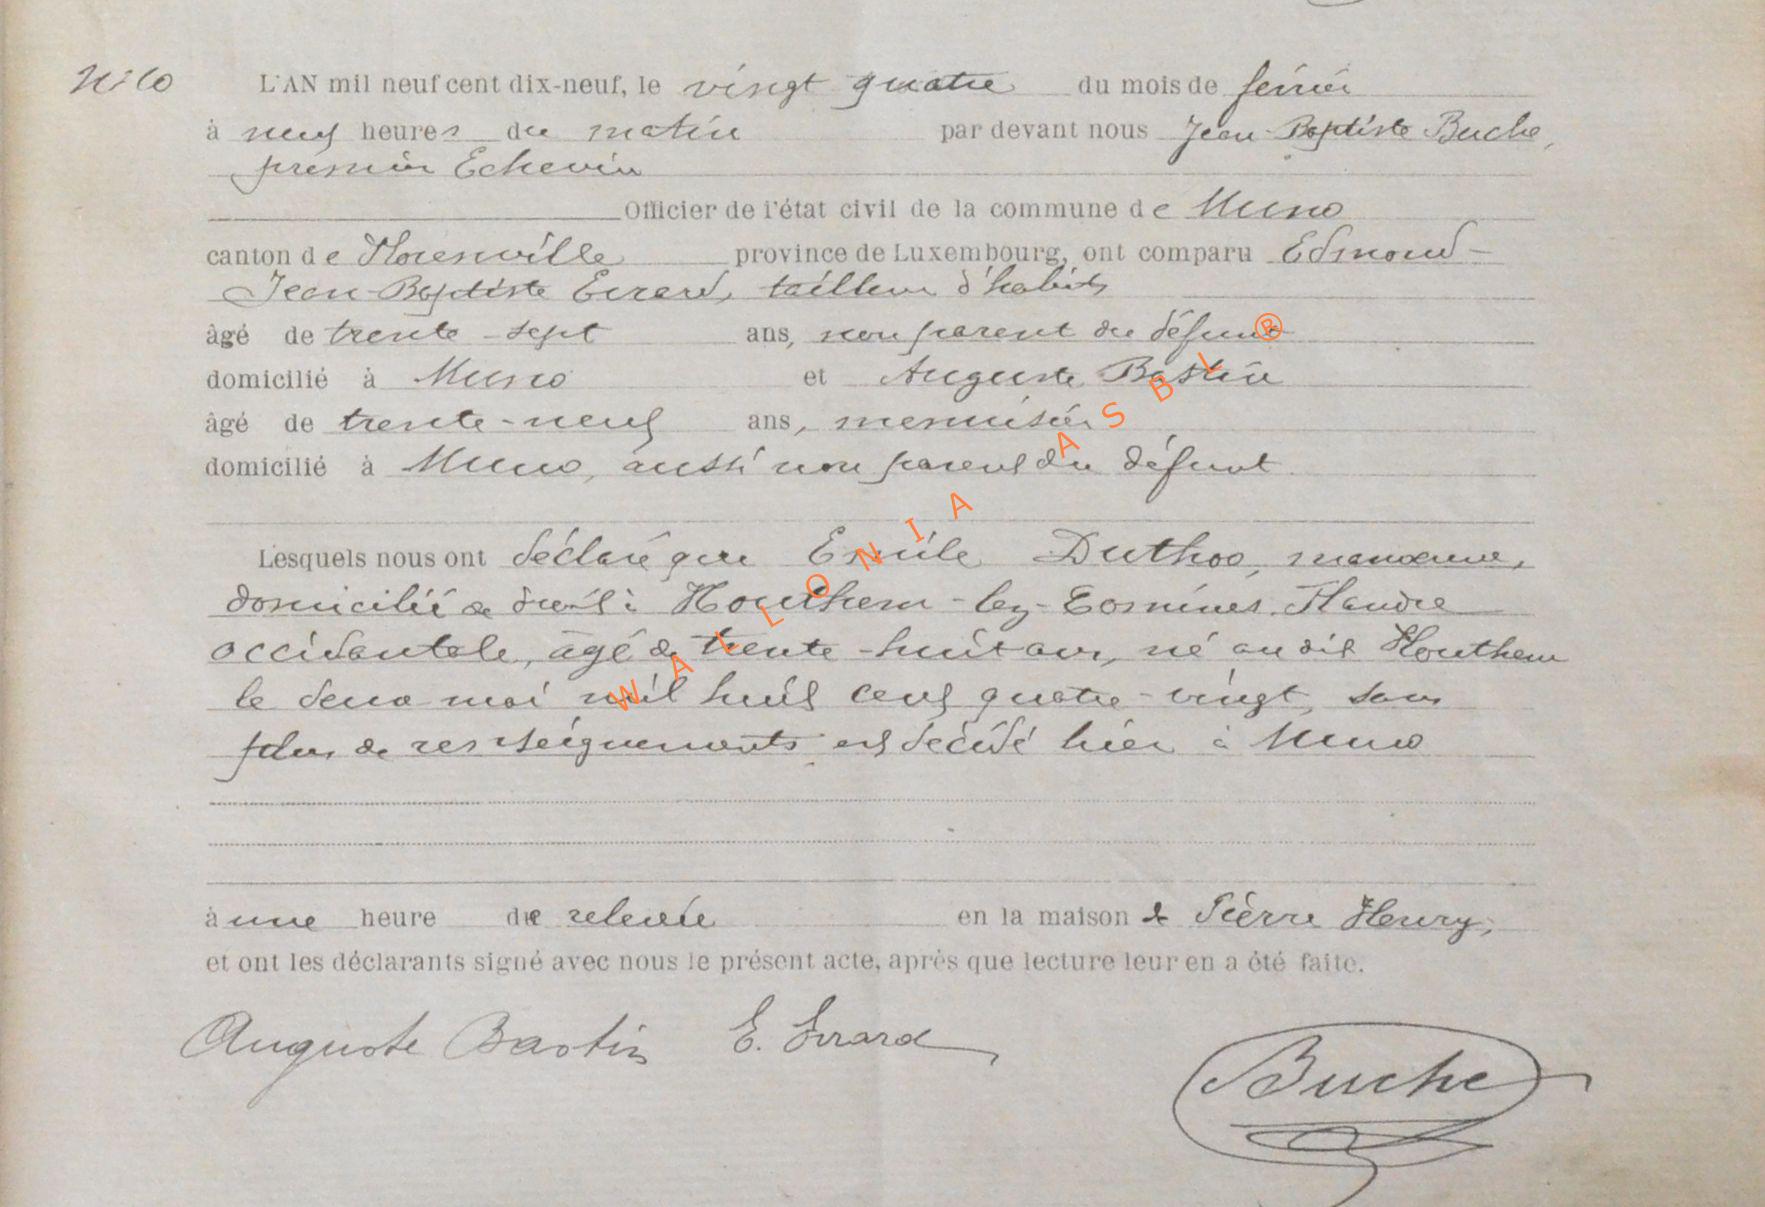 N: 10 L'AN mil neuf cent dix-neuf, le vingt quatre du mois de février
à neuf heures du matin par devant nous Jean-Baptiste Buche,
premier Echevin
Officier de l'état civil de la commune de Muno
canton de Florenville province de Luxembourg, ont comparu Edmond-
Jean-Baptiste Evrard, tailleur d'habits
âgé de trente-sept ans, non parent du défunt
domicilié à Muno et Auguste Bastin
âgé de trente-neuf ans, menuisier
domicilié à Muno, aussi non parent du défunt
Lesquels nous ont déclaré que Emile Duthoo, manœuvre,
domicilié de droit à Houthem-lez-Comines Flandre
occidentale, âgé de trente-huit ans, né au dit Houthem
le deux mai mil huit cent quatre-vingt, sans
plus de renseignements est décédé hier à Muno
à une heure de relevée en la maison de Pierre Henry,
et ont les déclarants signé avec nous le présent acte, après que lecture leur en a été faite.
Auguste Bastin E. Evrard Buche
WALLONIA ASBL ®